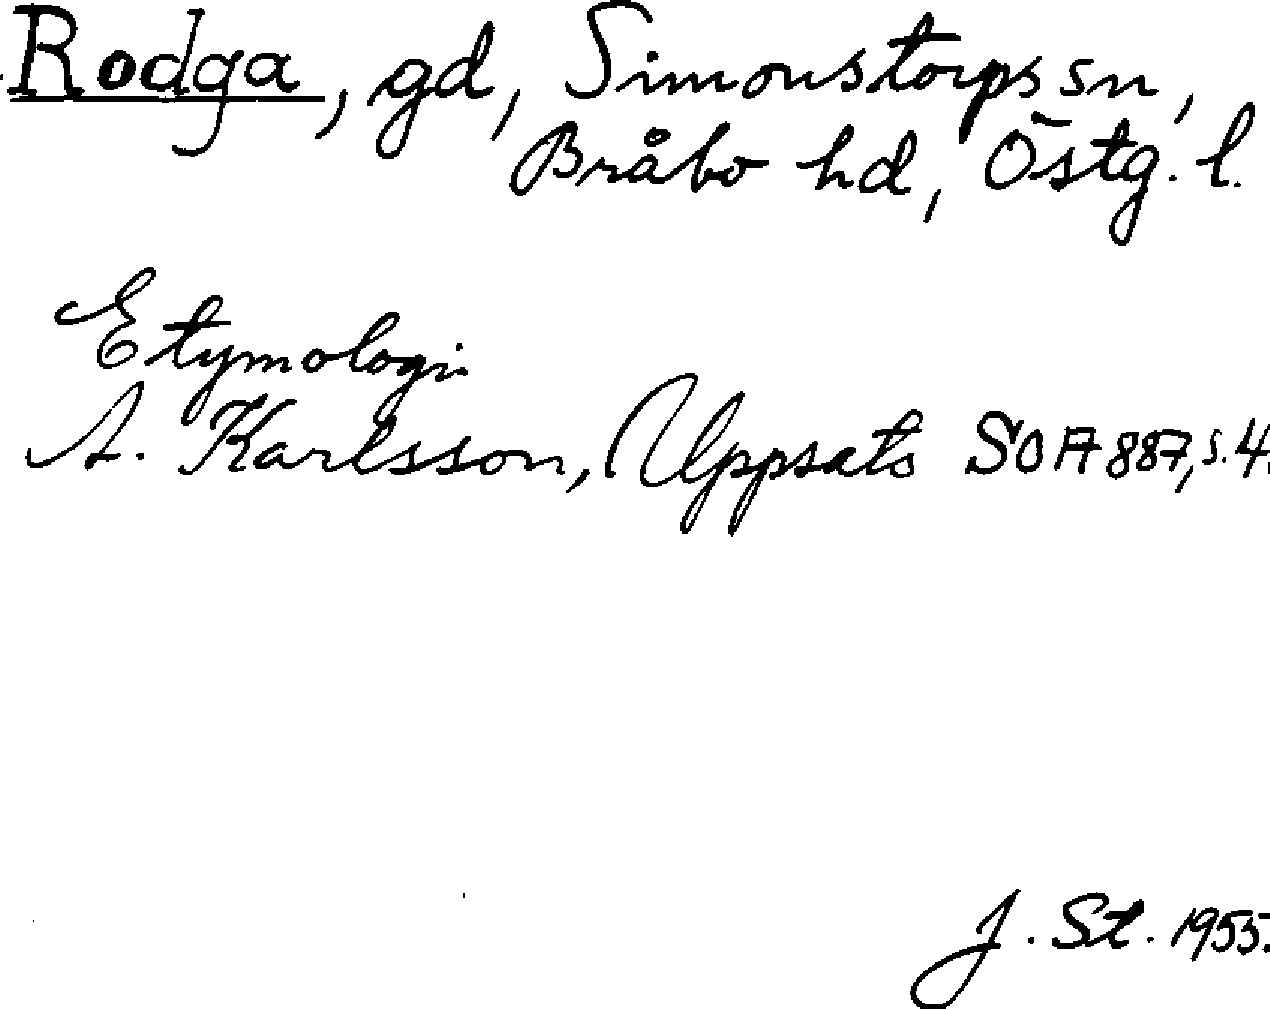 Rodga, gd, Simonstorps sn,
Bråbo hd, Östg. l.
Etymologi.
A. Karlsson, Uppsats SOA 887, s. 4.
J. St. 1955.